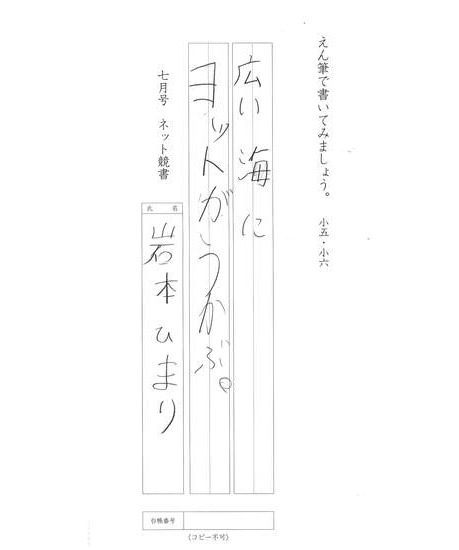 えん筆で書いてみましょう。 小五・小六
広い海に
ヨットがうかぶ。
七月号 ネット競書
氏名
岩本ひまり
台帳番号
(コピー不可)